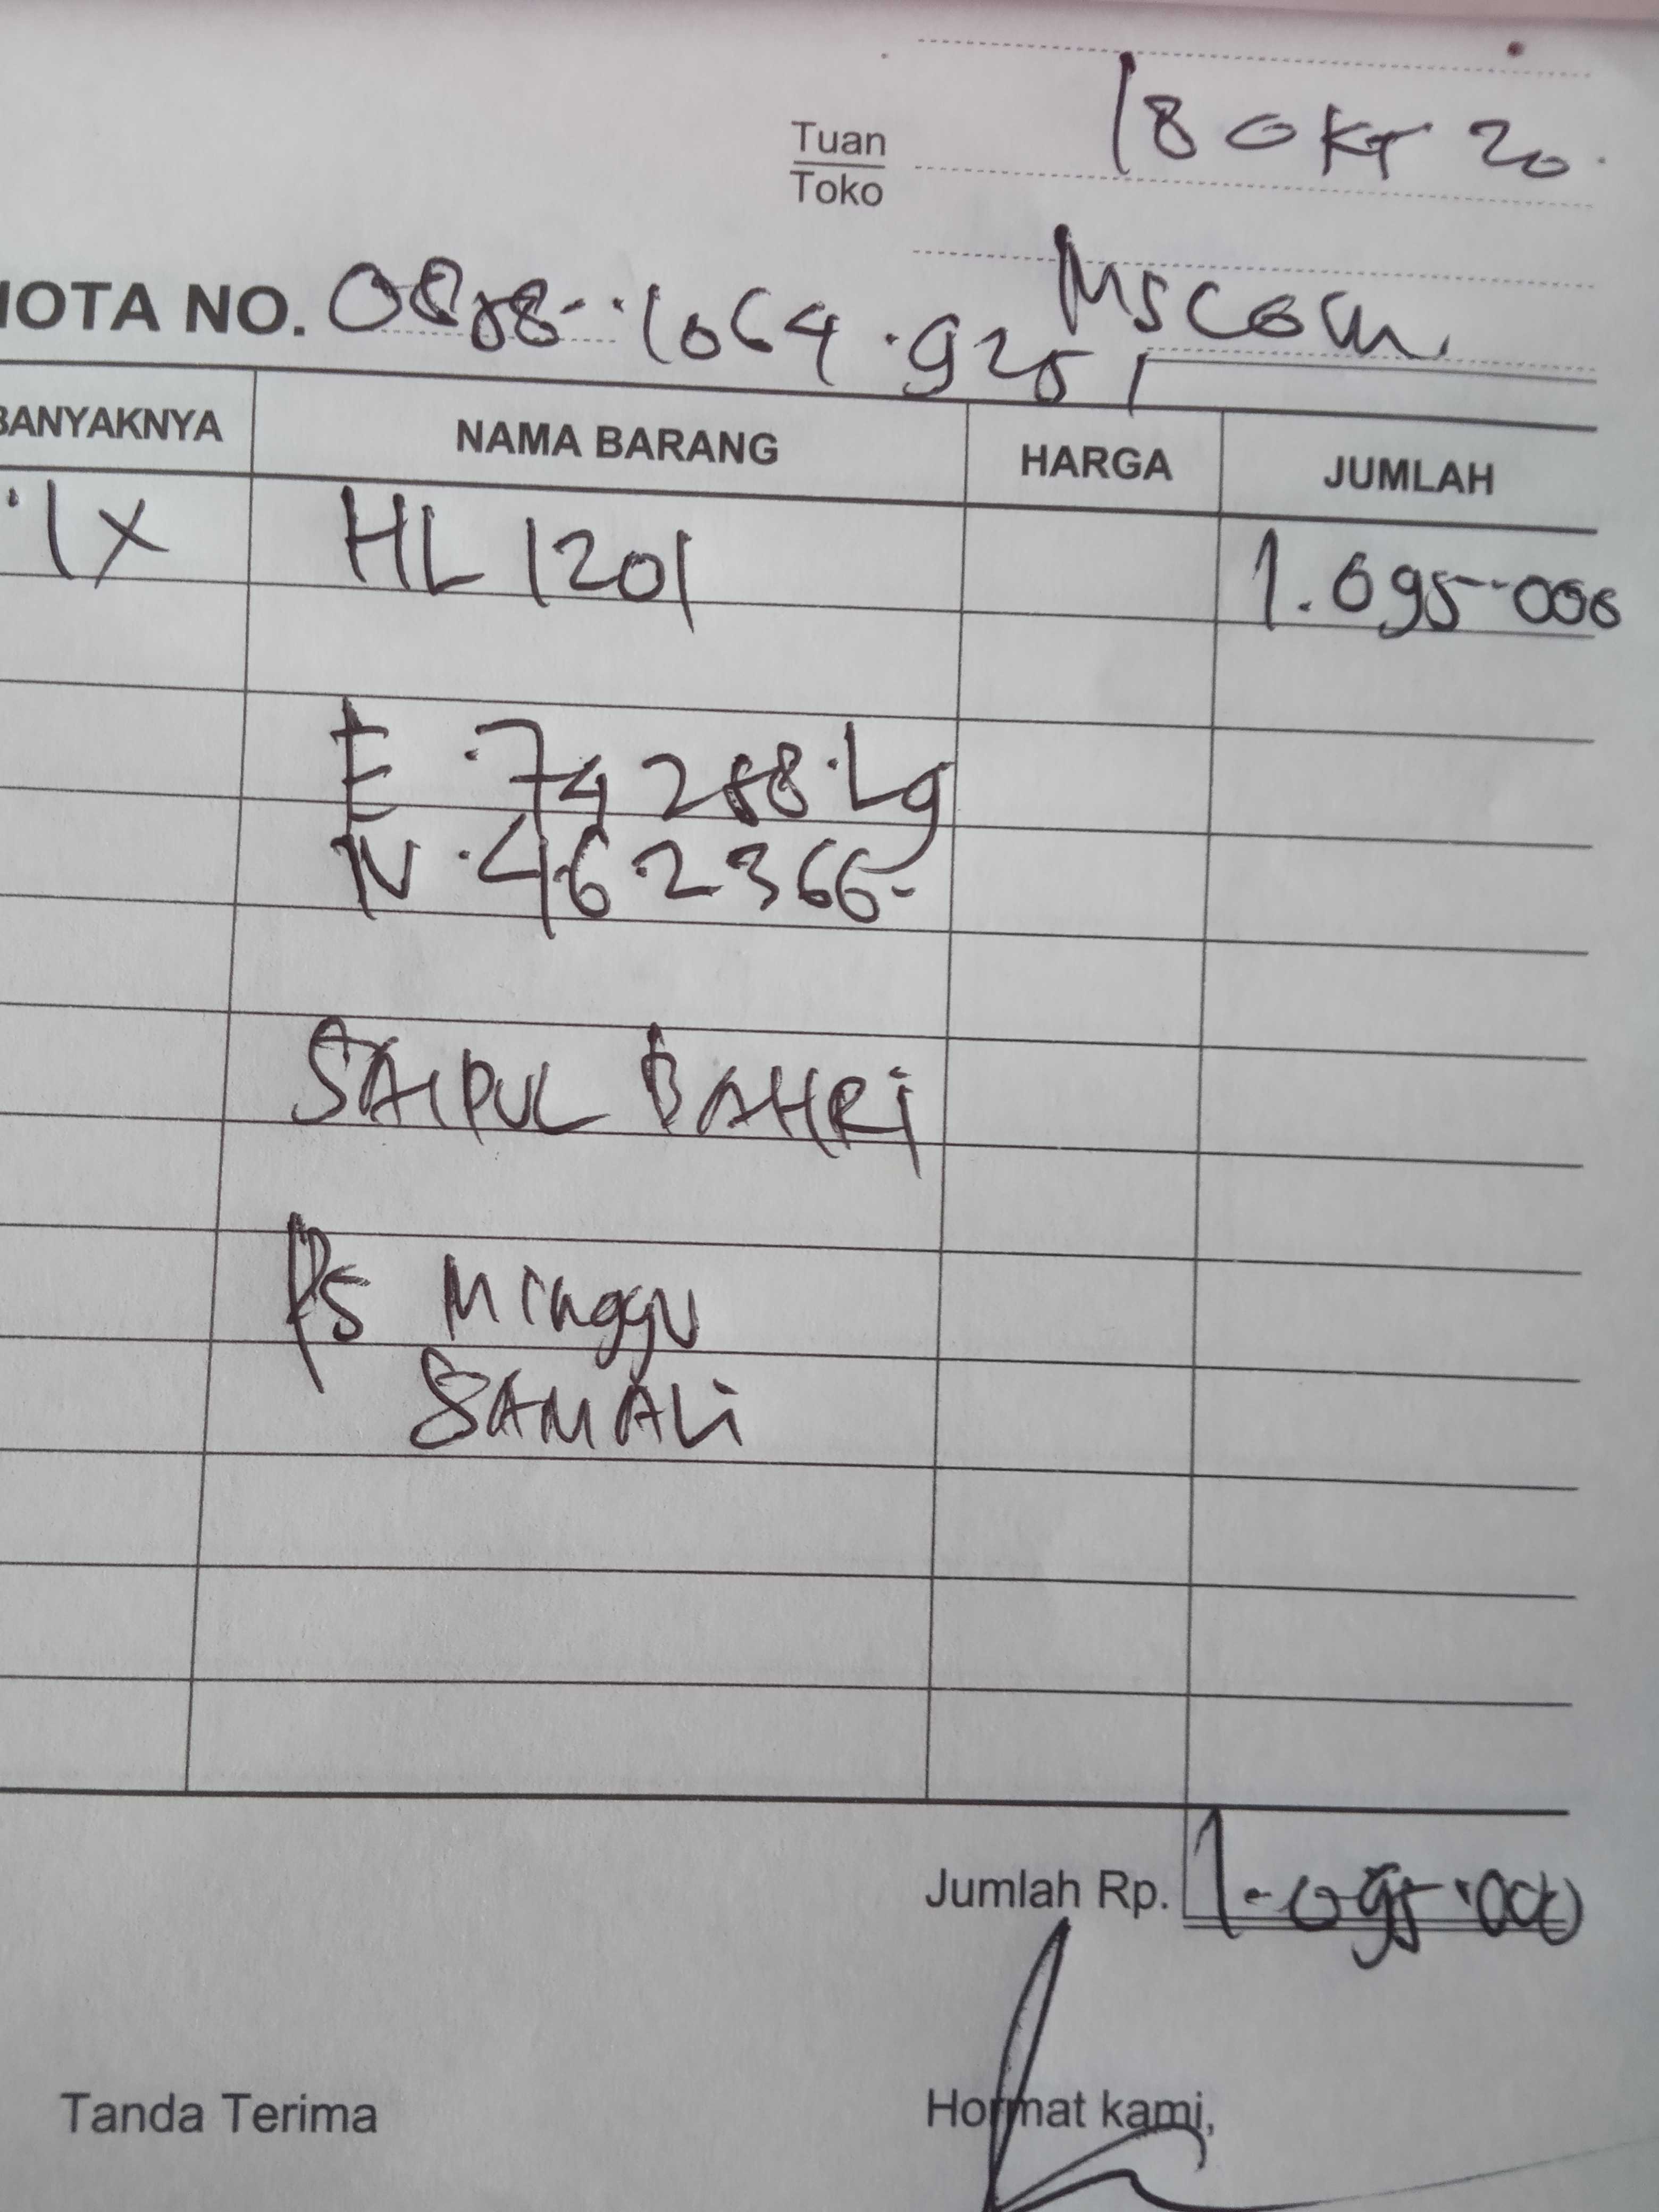 18 OKT 20.
Tuan
Toko
Mscom
NOTA NO. 0888-1064.9251
BANYAKNYA NAMA BARANG HARGA JUMLAH
1X HL 1201 1.095.000
E.74288.L9
N.462366-
SAIPUL BAHRI
PS Minggu
SAMALI
Jumlah Rp. 1.095.000
Tanda Terima Hormat kami,